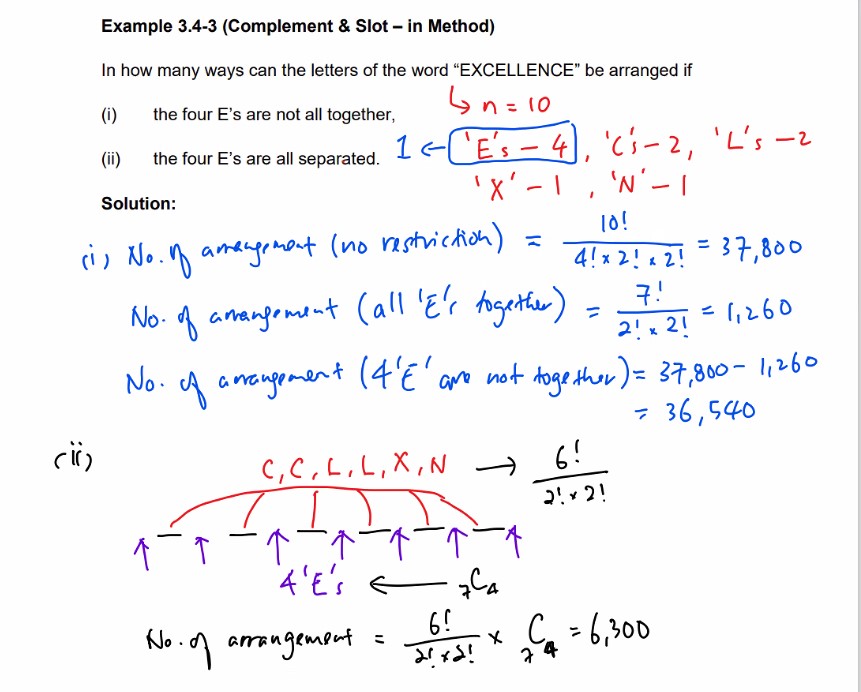 Example 3.4-3 (Complement & Slot – in Method)
In how many ways can the letters of the word “EXCELLENCE” be arranged if
↳ n = 10
(i) the four E's are not all together,
(ii) the four E's are all separated.
1 ← 'E's – 4, 'C's – 2, 'L's – 2
'X' – 1, 'N' – 1
Solution:
(i) No. of arrangement (no restriction) = 10! / (4! × 2! × 2!) = 37,800
No. of arrangement (all 'E's together) = 7! / (2! × 2!) = 1,260
No. of arrangement (4 'E' are not together) = 37,800 – 1,260
= 36,540
(ii)
C, C, L, L, X, N → 6! / (2! × 2!)
↑ _ ↑ _ ↑ _ ↑ _ ↑ _ ↑ _ ↑
4 'E's ← ₇C₄
No. of arrangement = 6! / (2! × 2!) × ₇C₄ = 6,300